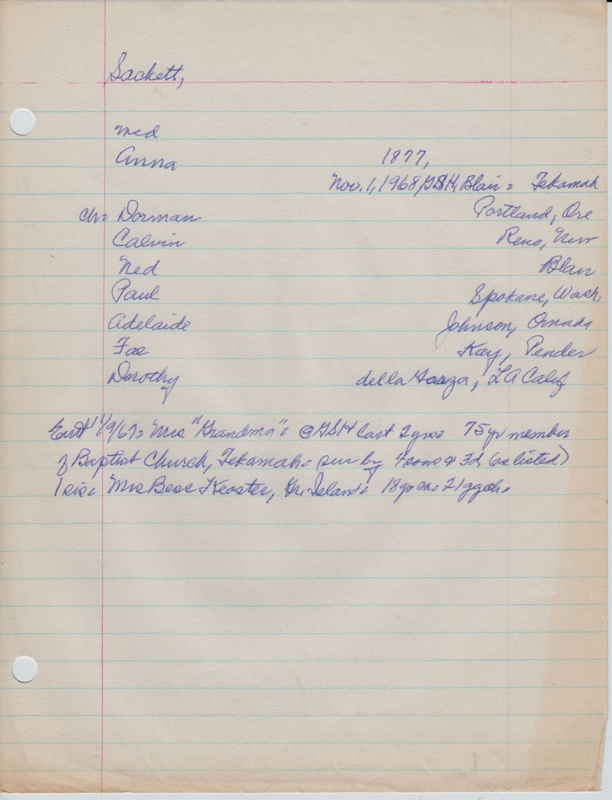 Sackett,
med
Anna 1877,
Nov. 1, 1968/GSH, Blair = Tekamah
ch= Dorman Portland, Ore
Calvin Reno, Nev
Ned Blair
Paul Spokane, Wash.
Adelaide Johnson, Omaha
Fae Kay, Pender
Dorothy della LA Calif
Ent 11/9/67= Mrs "Grandma"= @GSH last 2 yrs= 75 yr member
of Baptist Church, Tekamah= sur by 4 sons & 3d, (as listed)
1 sis= Mrs Bess Gr. Island= 18 gr ch= 21 ggch=